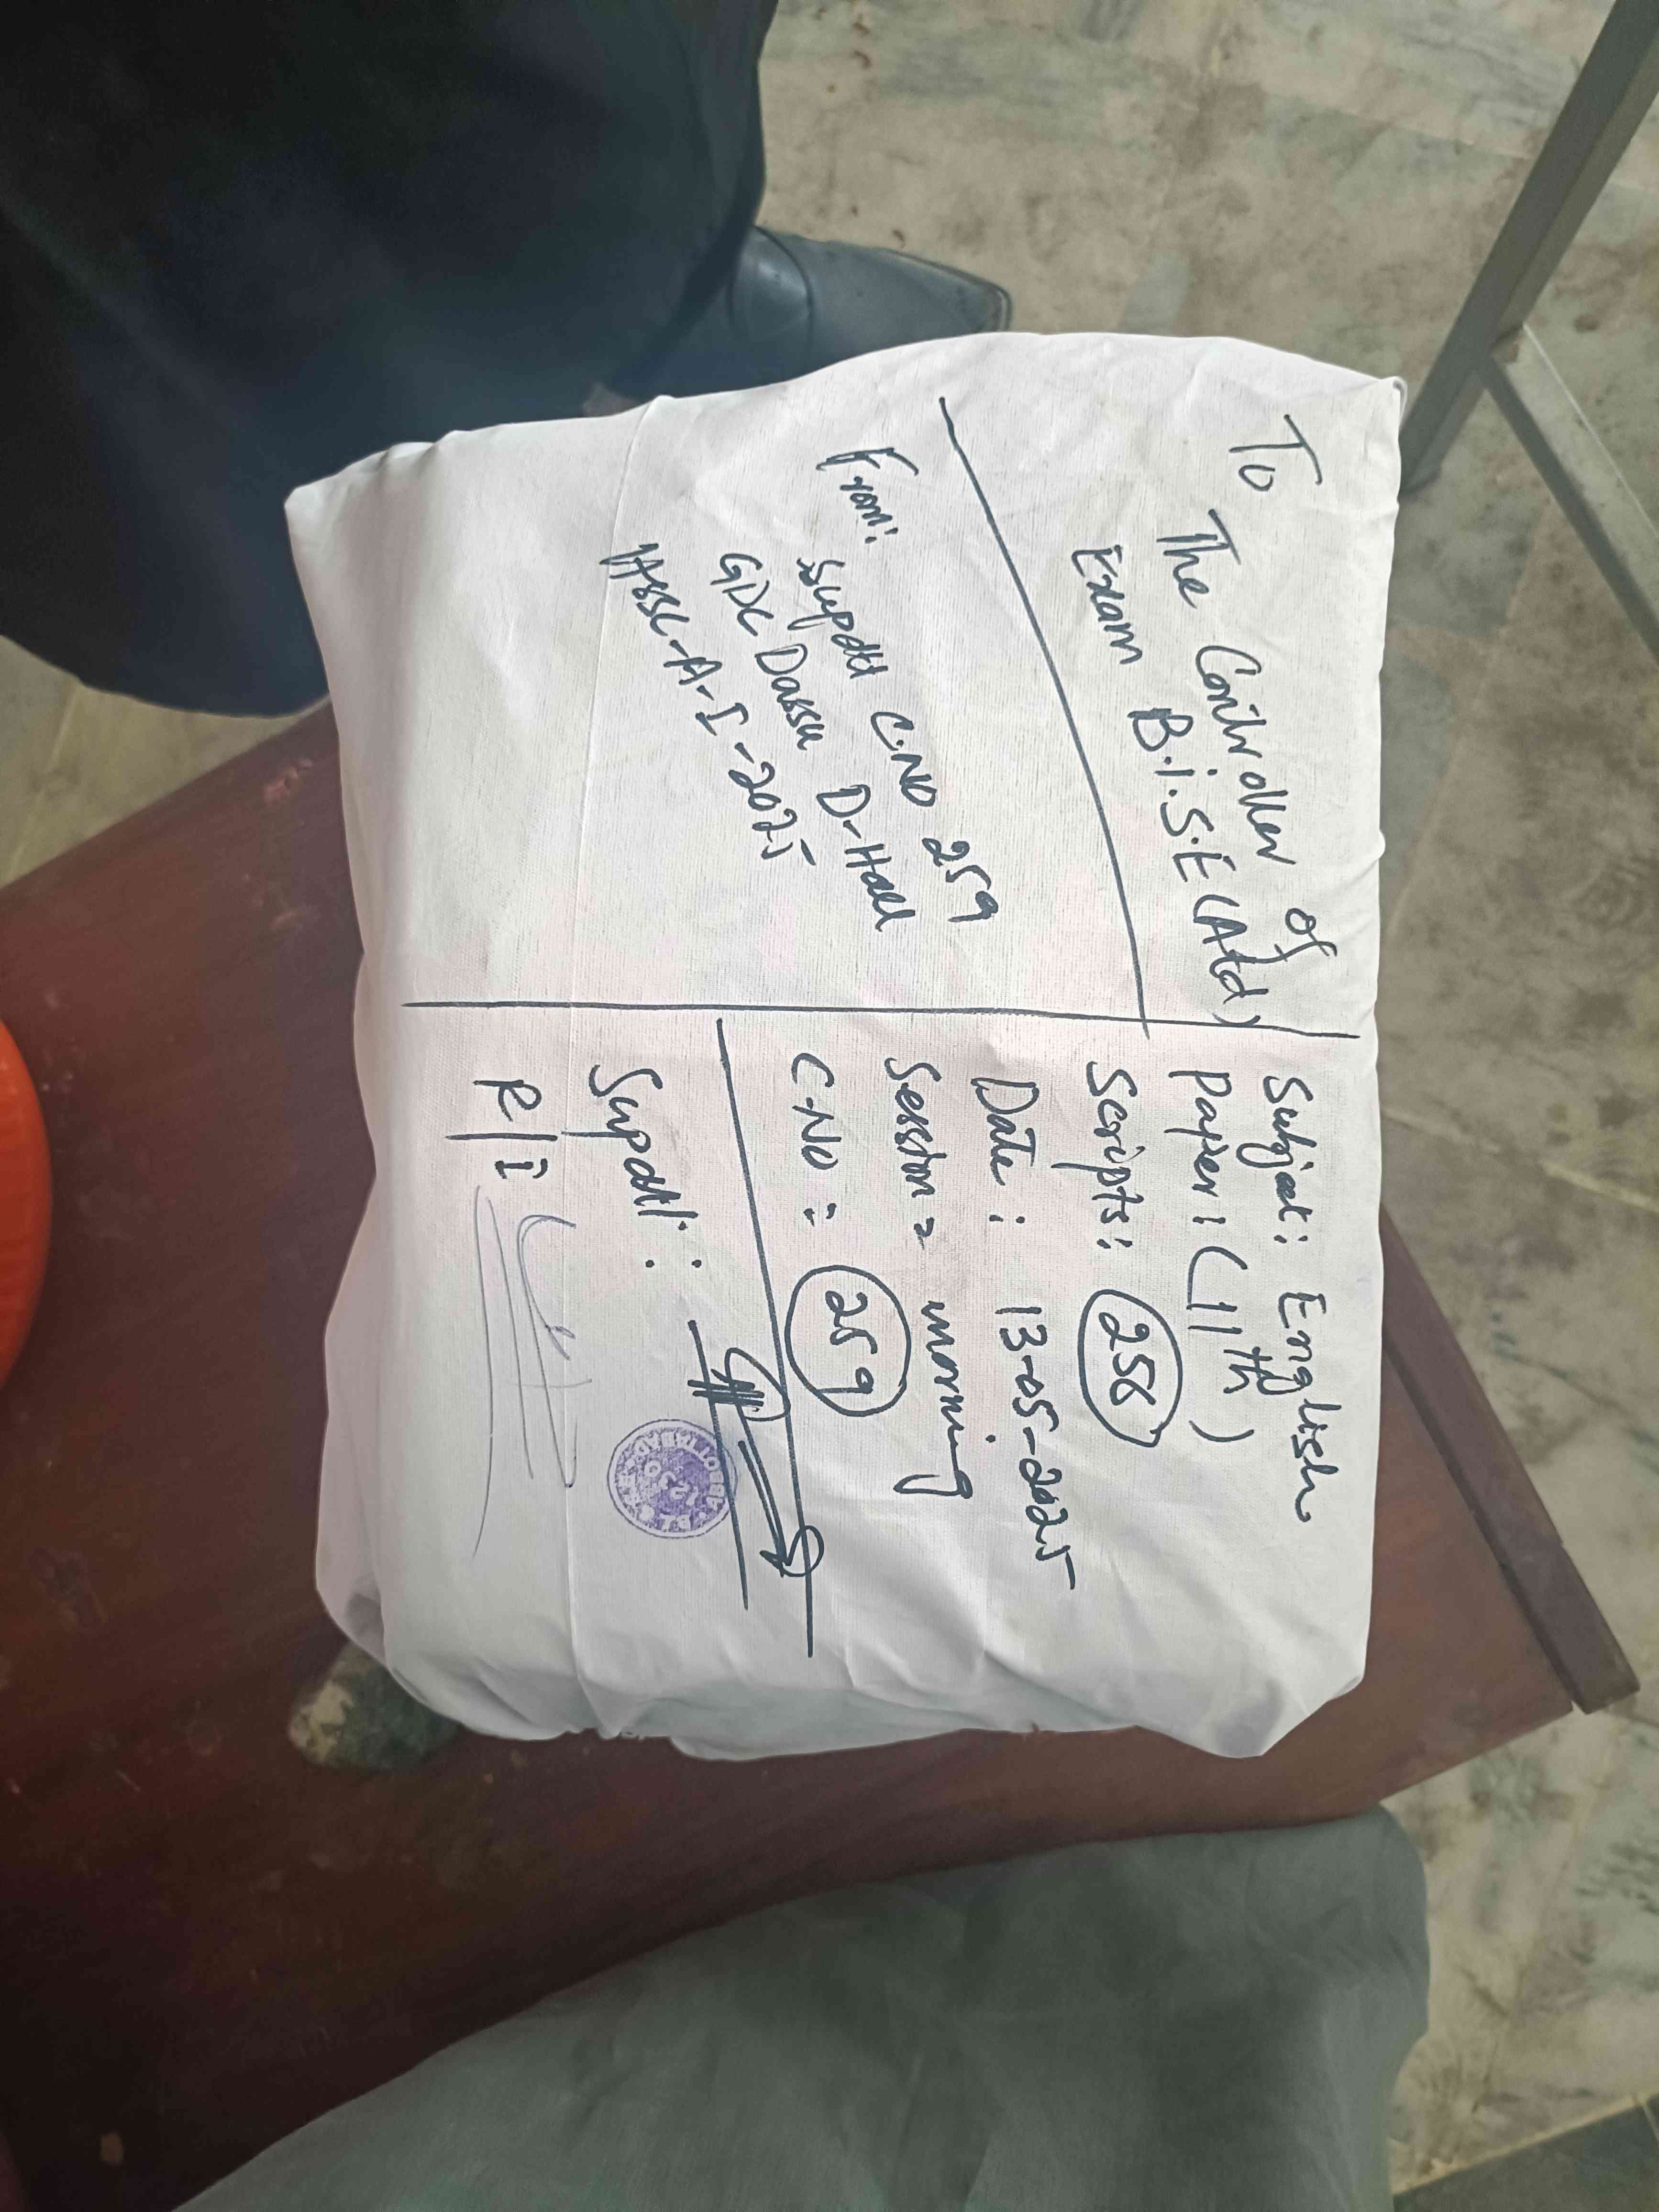 To
The Controller of
Exam B.I.S.E (Atd)
From:
Supdt C.NO 259
GDC Dassu D-Hall
HSSC-A-I-2025
Subject: English
Paper: (11th)
Scripts: 256
Date: 13-05-2025
Session = morning
C.NO = 259
Supdt:
R/I